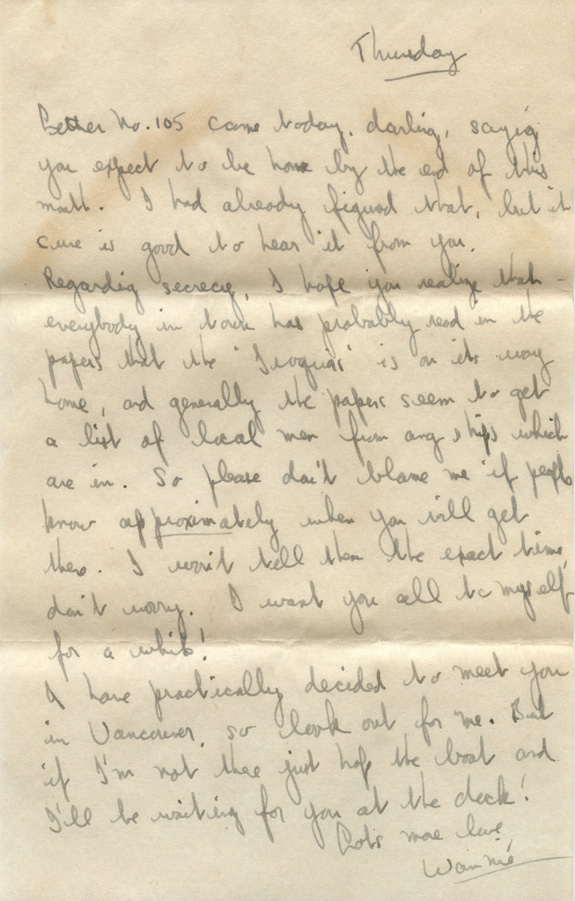 Thursday
Letter No. 105 came today, darling, saying
you expect to be home by the end of this
month. I had already figured that, but it
sure is good to hear it from you.
Regarding secrecy, I hope you realize that
everybody in town has probably read in the
papers that the "Iroquois" is on its way
home, and generally the papers seem to get
a list of local men from any ships which
are in. So please don't blame me if people
know approximately when you will get
there. I won't tell them the exact time,
don't worry. I want you all to myself
for a while!
I have practically decided to meet you
in Vancouver, so look out for me. But
if I'm not there just hop the boat and
I'll be waiting for you at the dock!
Lots more love